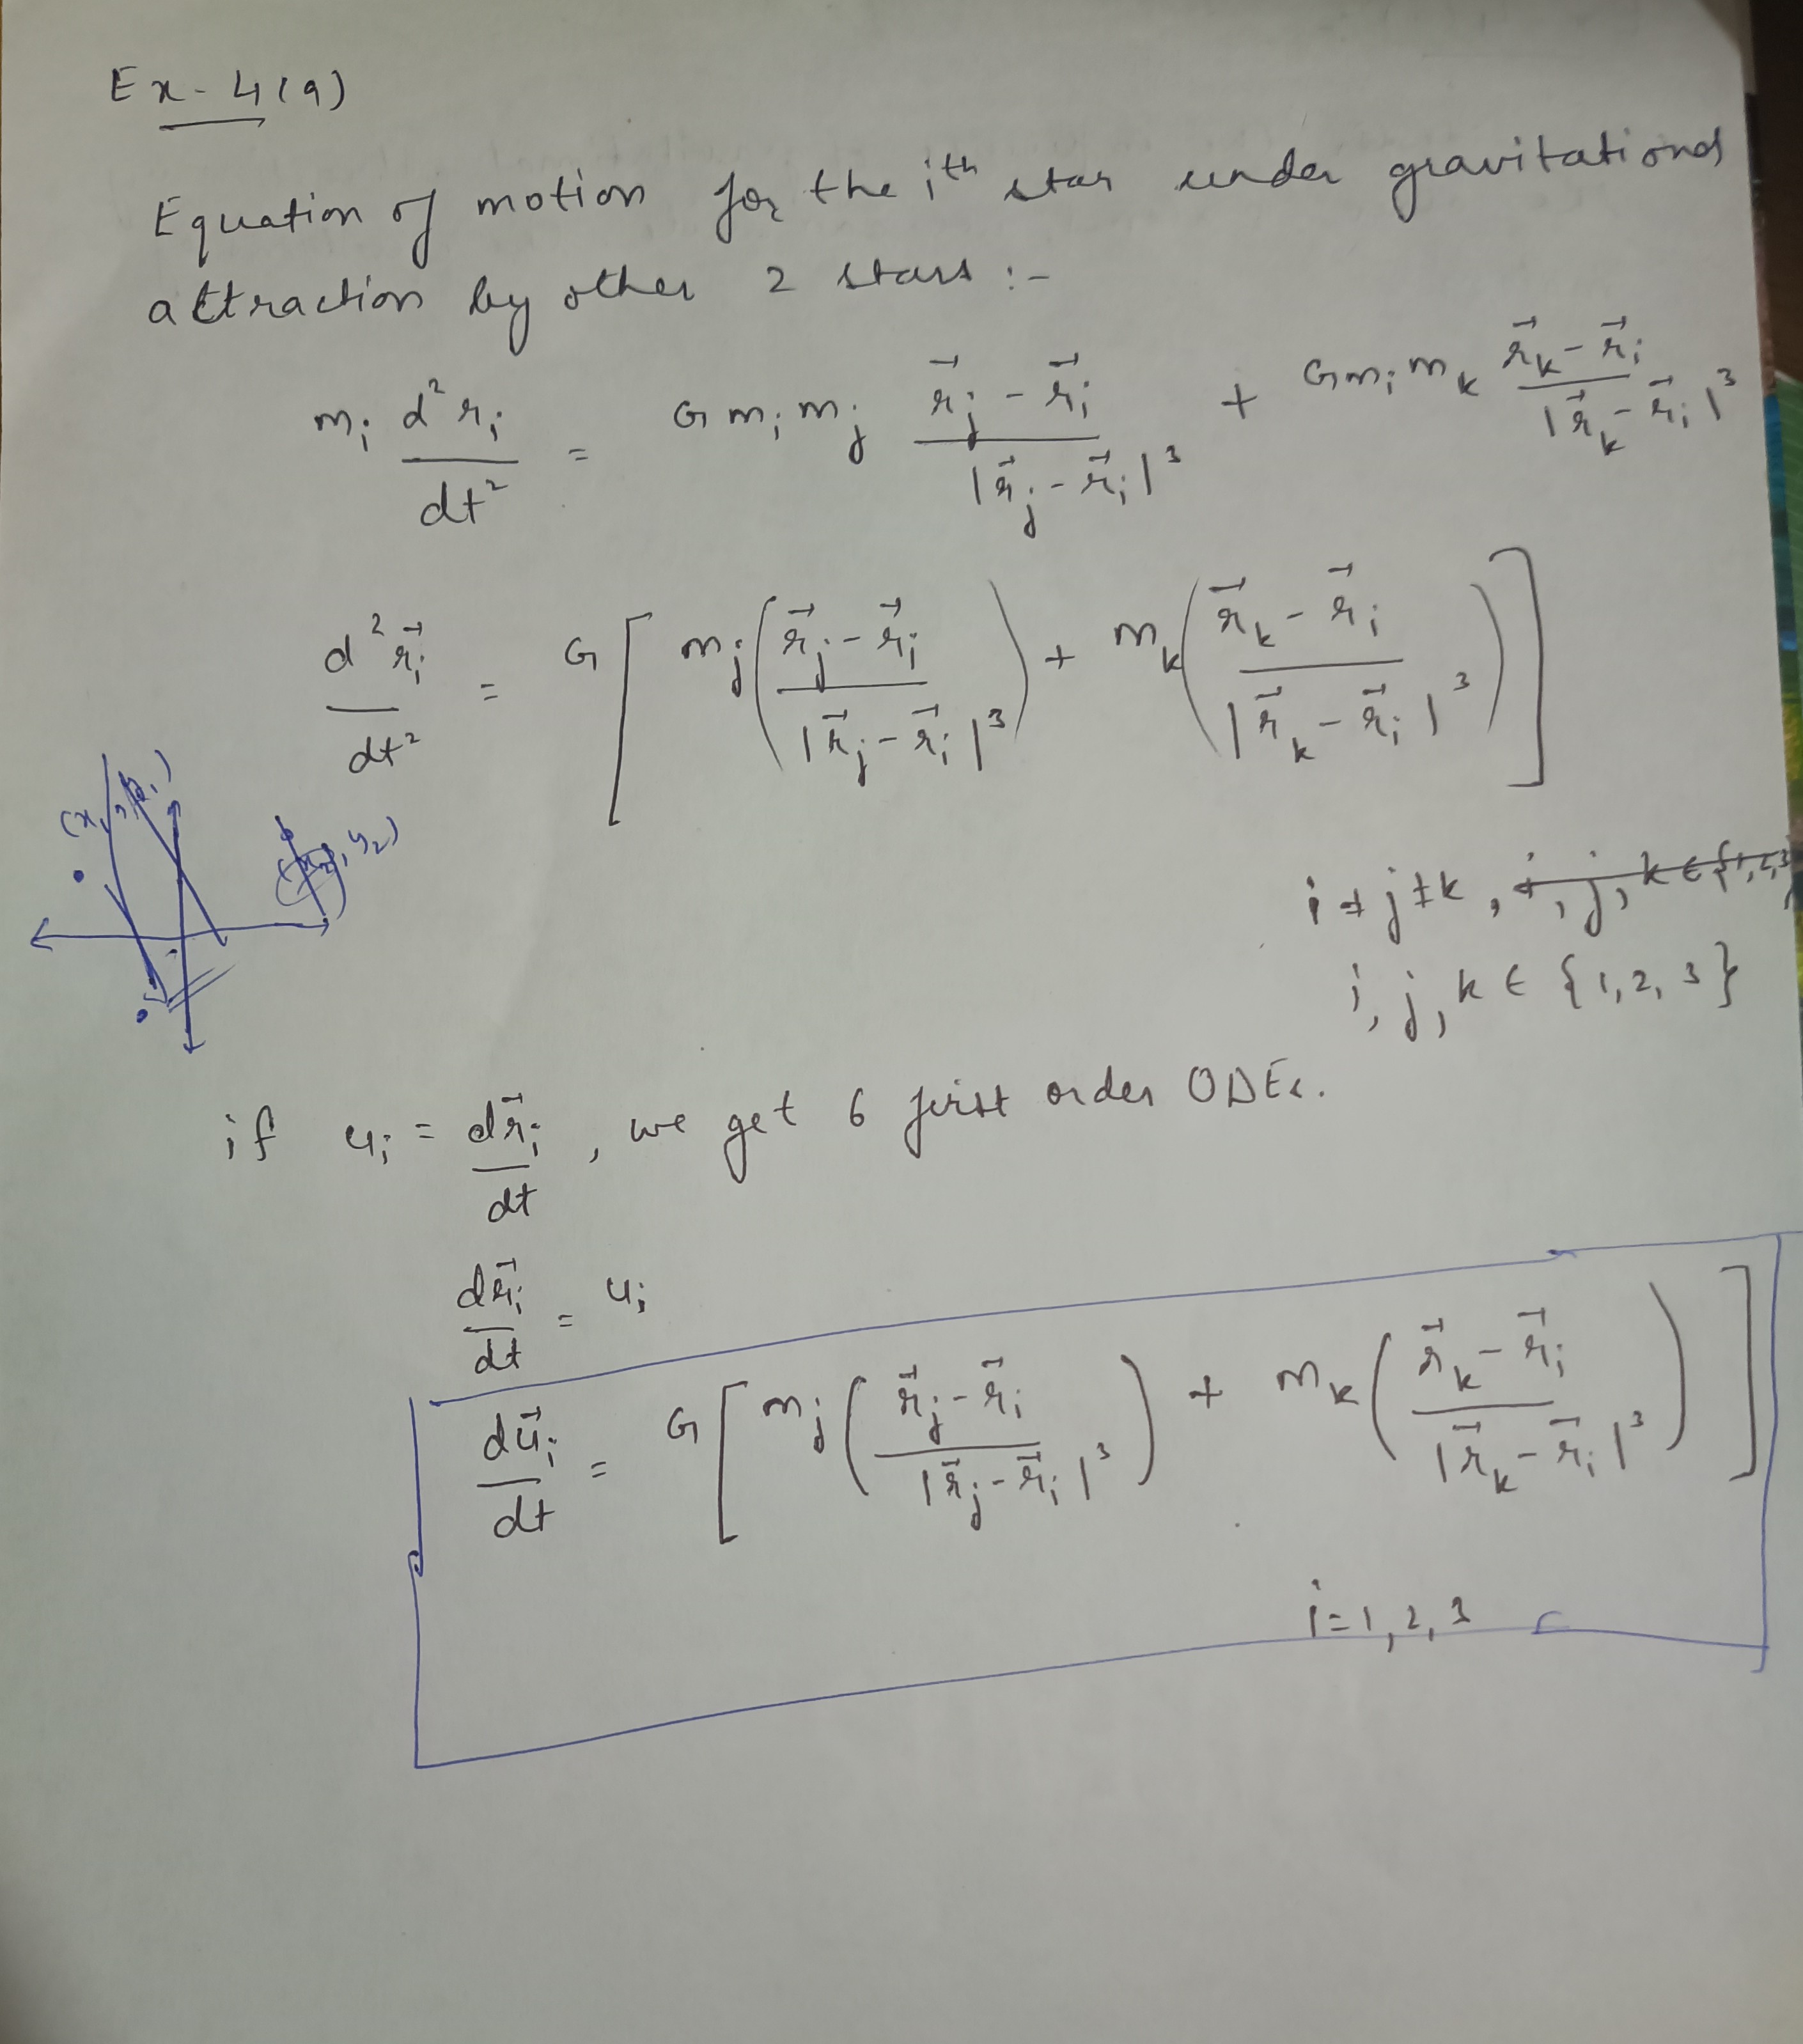 Ex-4(a)
Equation of motion for the ith star under gravitational
attraction by other 2 stars :-
m_i d²r_i/dt² = G m_i m_j (r⃗_j - r⃗_i)/|r⃗_j - r⃗_i|³ + G m_i m_k (r⃗_k - r⃗_i)/|r⃗_k - r⃗_i|³
d²r⃗_i/dt² = G [ m_j ( (r⃗_j - r⃗_i)/|r⃗_j - r⃗_i|³ ) + m_k ( (r⃗_k - r⃗_i)/|r⃗_k - r⃗_i|³ ) ]
i ≠ j ≠ k , i, j, k ∈ {1,2,3}
i, j, k ∈ {1, 2, 3}
if u_i = dr⃗_i/dt , we get 6 first order ODEs.
dr⃗_i/dt = u_i
du⃗_i/dt = G [ m_j ( (r⃗_j - r⃗_i)/|r⃗_j - r⃗_i|³ ) + m_k ( (r⃗_k - r⃗_i)/|r⃗_k - r⃗_i|³ ) ]
i=1, 2, 3